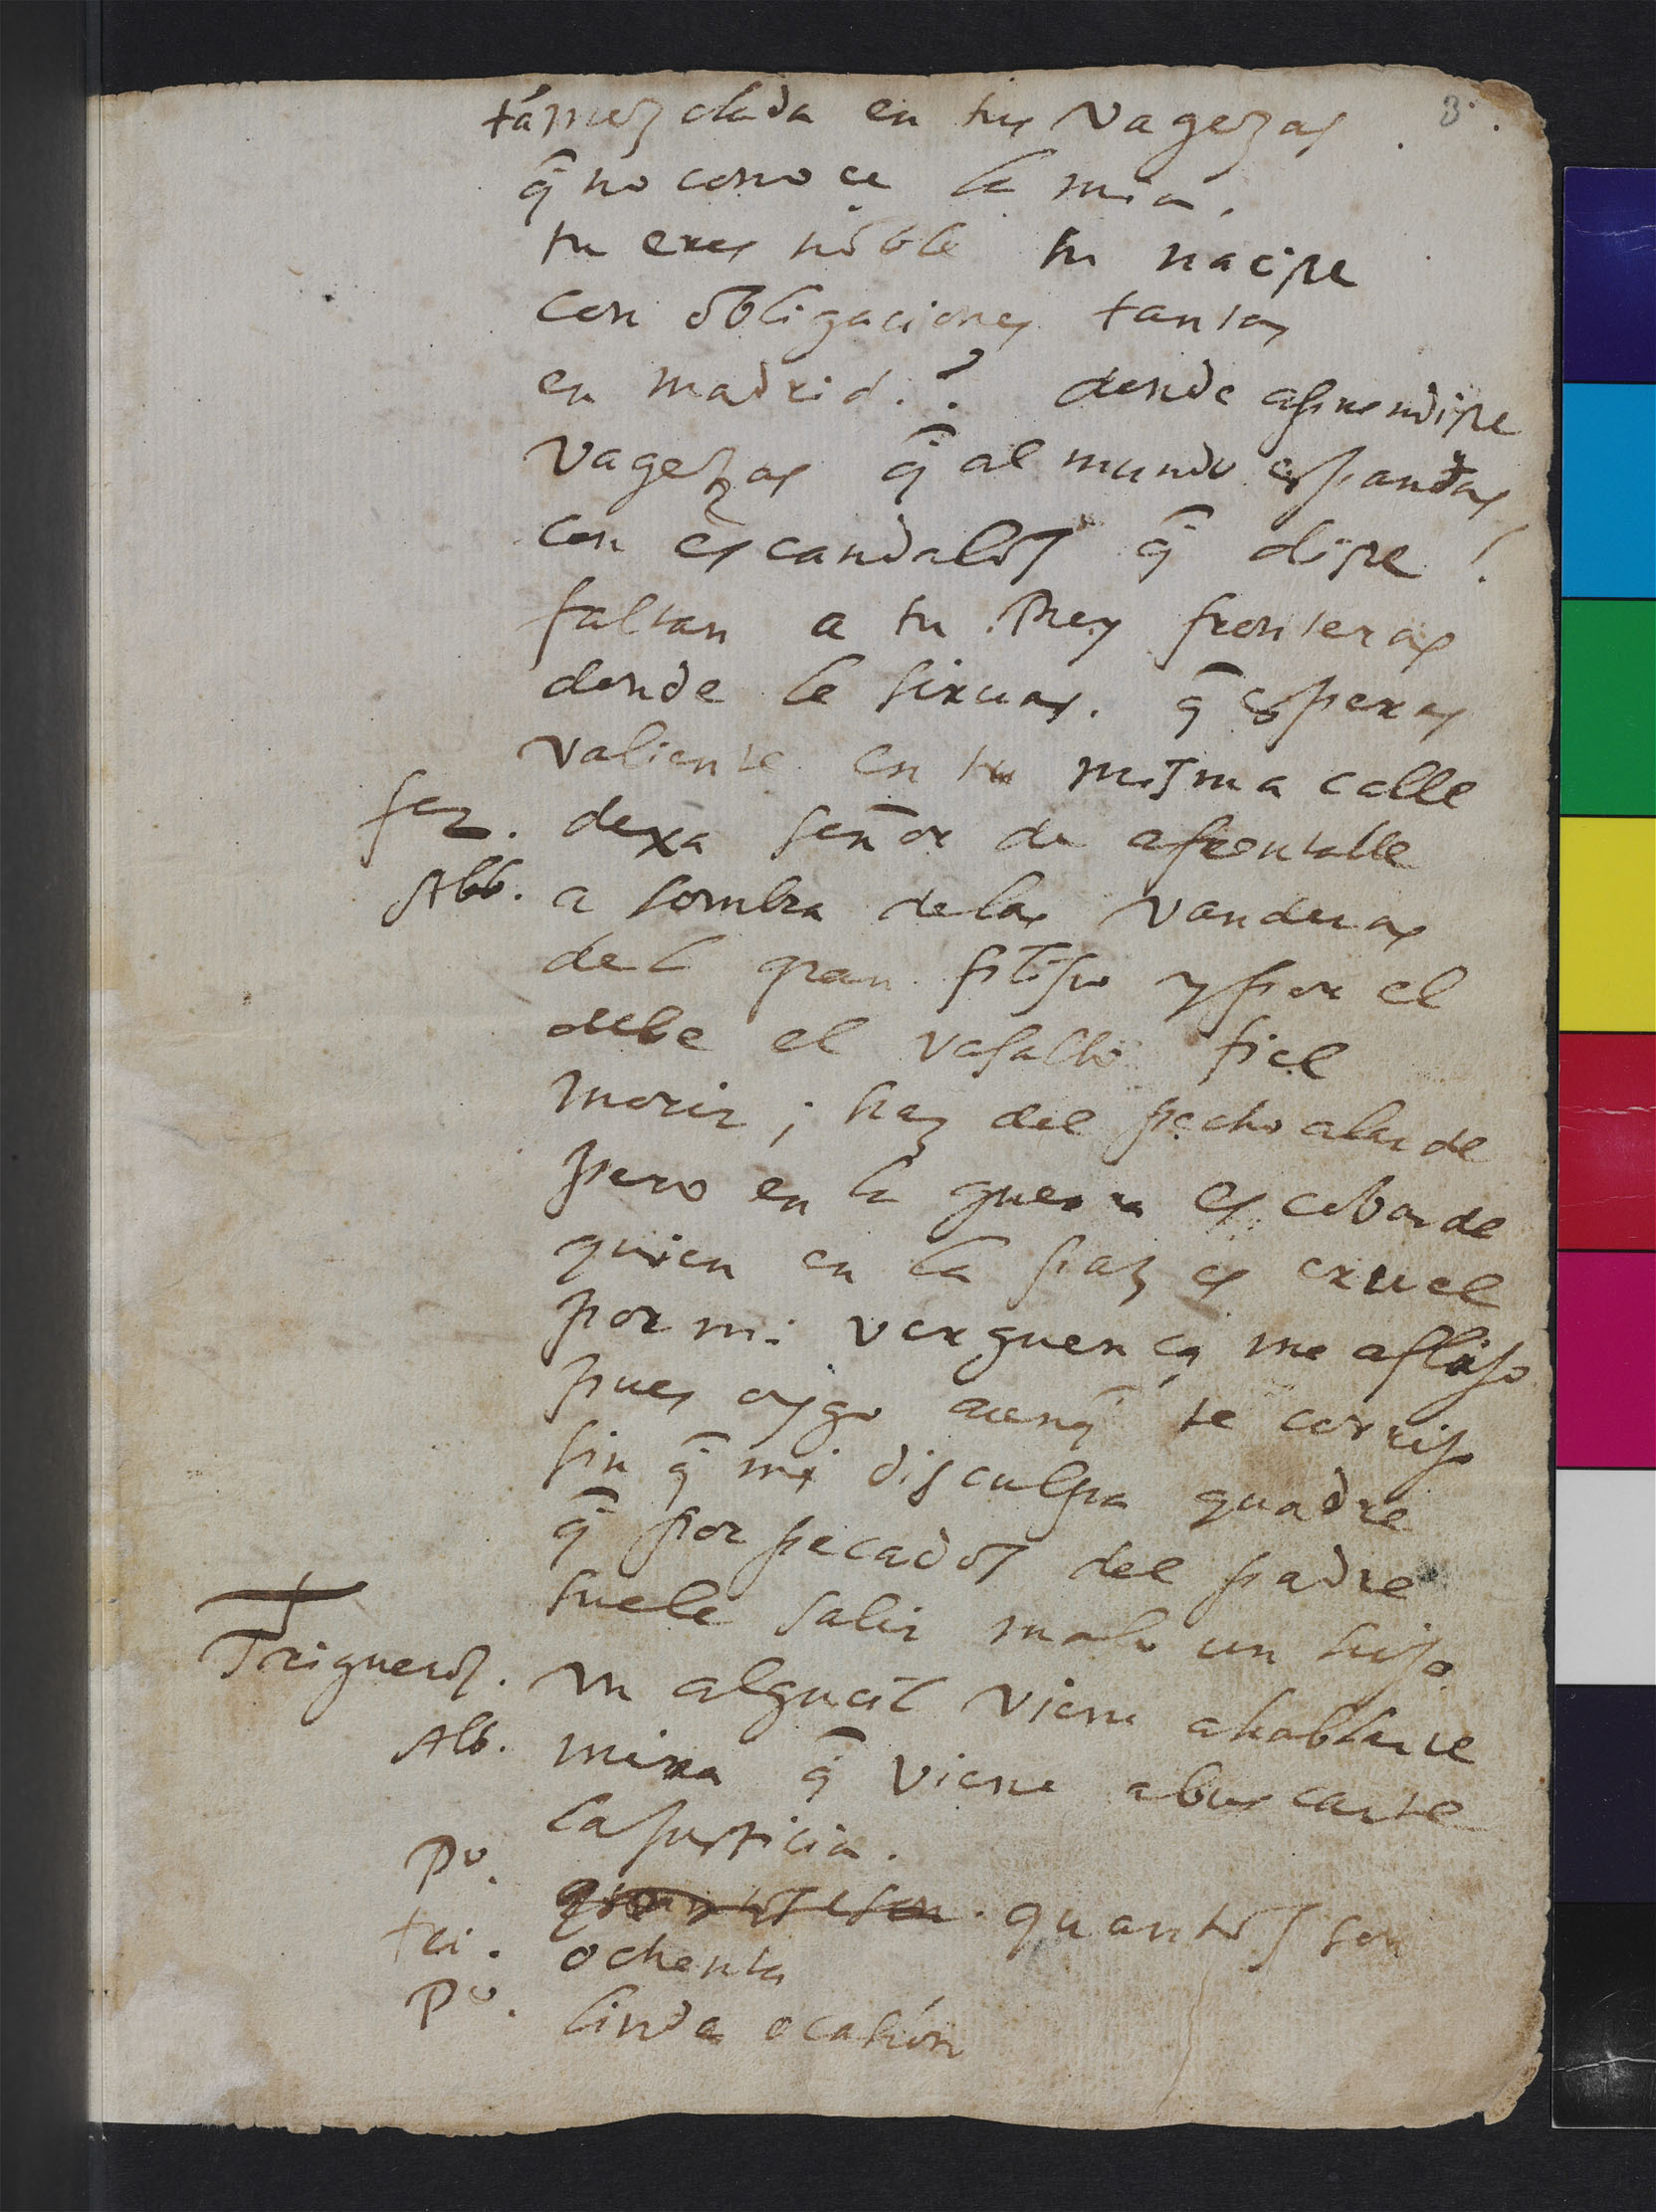 tã mezclada en tus vagezas 3.
q̃ no conoce la mia.
tu eres noble tu naciste
con obligaciones tantas
en madrid.? donde aprendiste
vagezas q̃ al mundo espantas
con escandalos q̃ diste!
faltan a tu Rey fronteras
donde le siruas. q̃ esperas
valiente en tu misma calle
fer. dexa señor de afrentalle
Alb. a sombra delas vanderas
del gran filipo y por el
debe el vasallo fiel
morir; haz del pecho alarde
pero en la guerra es cobarde
quien en la paz es cruel
por mi verguença me aflijo
pues oygo aunq̃ te corrijo
sin q̃ mi disculpa quadre
q̃ por pecados del padre
suele salir malo un hijo
Trigueros. vn alguacil viene ahablarte
Alb. mira q̃ viene abuscarte
la justicia.
Pº. quantos son
tri. ochenta
Pº. linda ocasión